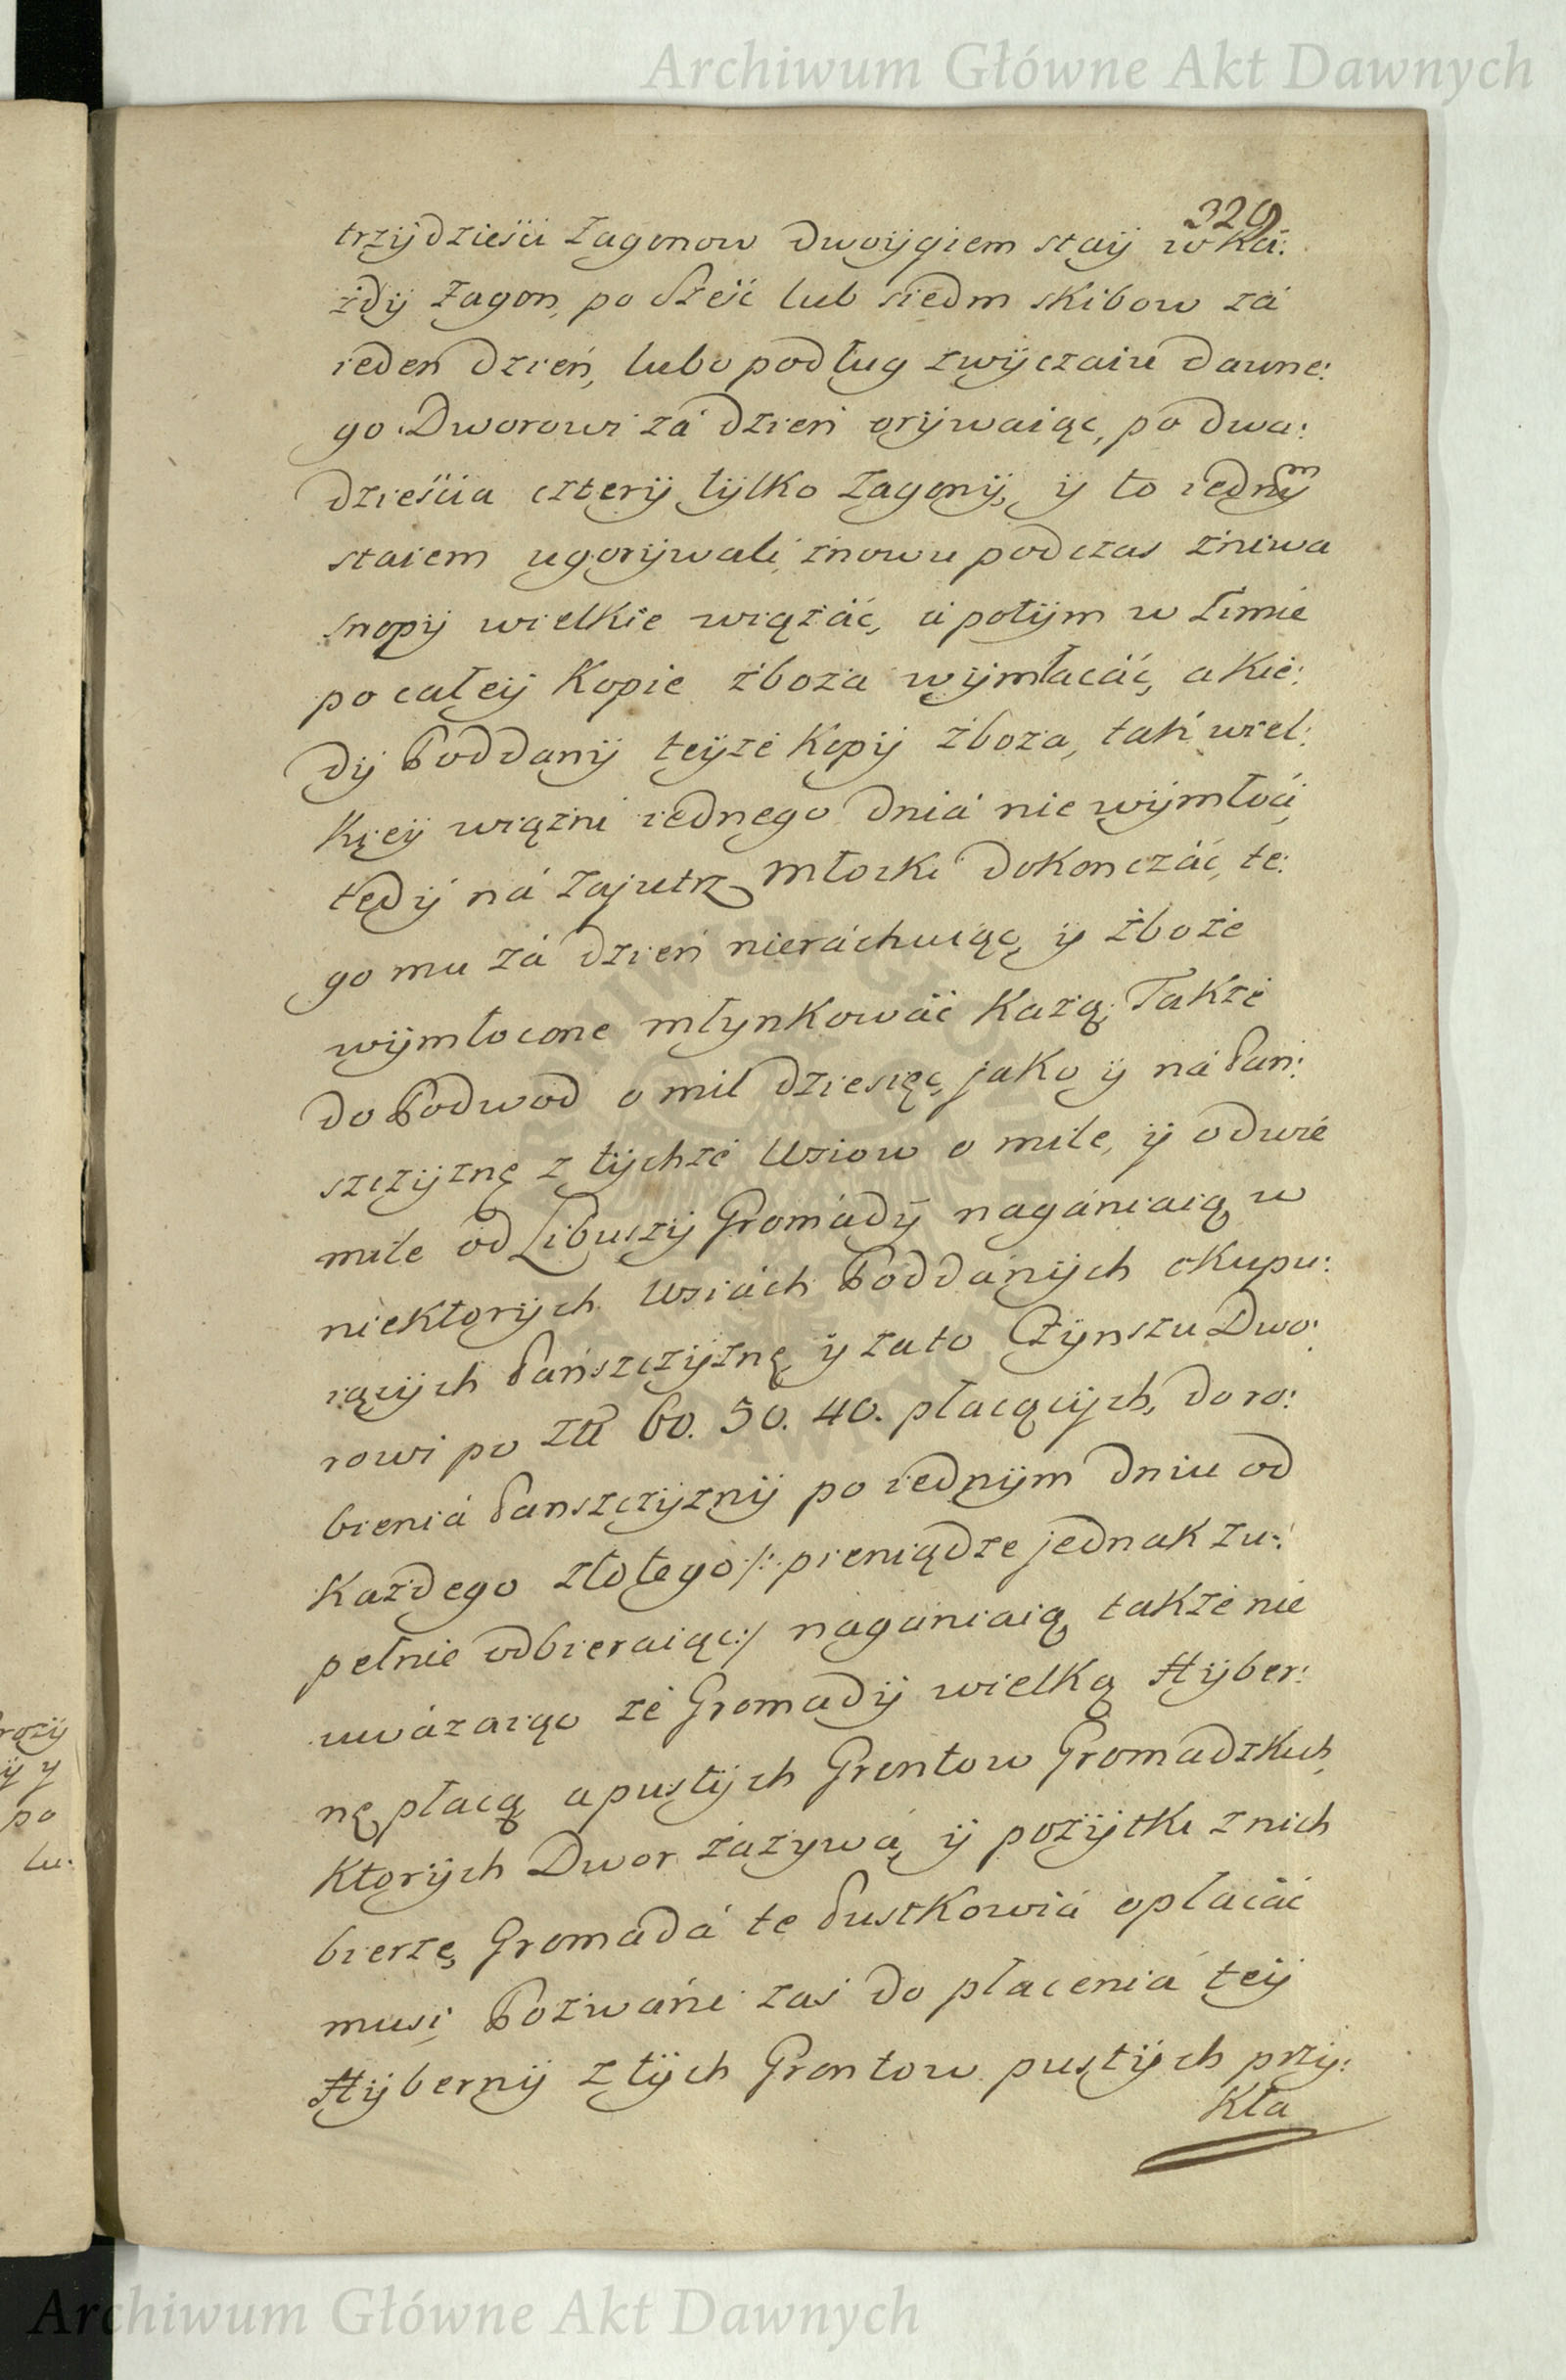 Archiwum Główne Akt Dawnych
329
trzÿdzieści zagonow dwoÿgiem staÿ w ká:
żdÿ zagon, po sześć lub siedm skibow zá
ieden dzień, lubo podług zwÿczaiu dawne:
go Dworowi zá dzień orÿwaiąc, po dwa:
dzieścia czterÿ tÿlko zagonÿ, ÿ to iednÿm
staiem ugorÿwali, znowu podczas żniwa
snopÿ wielkie wiązáć, á potÿm w zimie
po całeÿ Kopie zboża wÿmłacáć, a kie:
dÿ Poddanÿ teÿże Kopÿ zboża, tak wiel:
kieÿ wiązni iednego dniá nie wÿmłoci,
tedÿ ná zajutrz młocki dokonczáć, te:
go mu zá dzień nieráchuiąc, ÿ zboże
wÿmłocone młynkowáć każą, Także
do Podwod o mil dziesięć, jako ÿ ná Pań:
szczÿznę z tÿchże Wsiow o mile, ÿ o dwie
mile od Libuszÿ Gromádÿ nagániaią, w
niektorÿch Wsiách Poddánÿch okupu:
iącÿch Pańszczÿznę, ÿ zato Czÿnszu Dwo:
rowi po zł 60. 50. 40. płacącÿch, do ro:
bieniá Panszczÿznÿ po iednÿm dniu od
Każdego złotego /: pieniądze jednak zu:
pełnie odbieraiąc :/ nagániaią, także nie
uważaiąc że Gromadÿ wielką Hÿber:
nę płacą, a pustÿch Grontow Gromadzkich,
Ktorÿch Dwor zażywá, ÿ pożÿtki z nich
bierze, Gromadá te Pustkowiá opłacáć
musi, Pozwáni zaś do płaceniá teÿ
Hÿbernÿ z tÿch Grontow pustÿch przÿ:
kła
rożÿ
ÿ y
po
lu:
Archiwum Główne Akt Dawnych